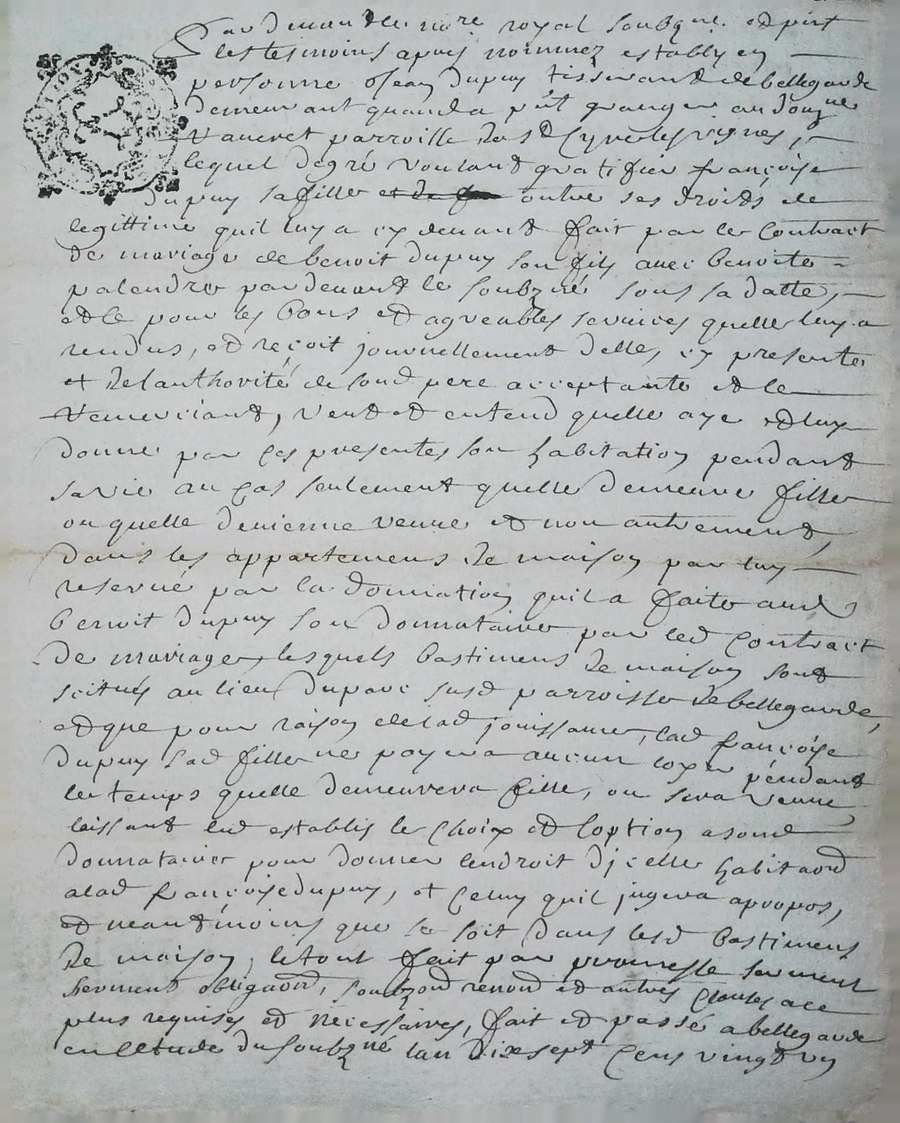 Pardevant le no.re royal soubzné et pnt
les tesmoins apres nommez estably en
personne sr Jean Dupuy tisserand de bellegarde
demeurant quand a pnt granger au domne
vauvret parroisse de St Cyre les vignes,
lequel de gré voulant gratiffier françoise
Dupuy sa fille outre ses droits de
legittime quil luy a cy devant fait par le Contract
de mariage de benoit dupuy son fils avec benoite
palandre pardevant le soubzné sous sa datte,
et ce pour les bons et agreables services quelle luy a
rendus, et reçoit journellement delle, cy presente
et de lauthorité de sond pere acceptante et le
remerciant, veut et entend quelle aye et luy
donne par ces presentes son habitation pendant
sa vie au cas seulement quelle demeure fille
ou quelle devienne veuve et non autrement,
dans les appartemens de maison par luy
reservé par la donnation quil a faite aud
benoit dupuy son donnataire par led Contract
de mariage, lesquels bastimens de maison sont
scitués au lieu Duparc susd parroisse de bellegarde,
et que pour raison de lad jouissance, lad françoise
dupuy sad fille ne payera aucun loyer pendant
le temps quelle demeurera fille, ou sera veuve
laissant led establis le choix et loption a sond
donnataire pour donner lendroit dicelle habitaon
a lad françoise dupuy, et celuy quil jugera apropos,
et neantmoins que ce soit dans lesd bastimens
de maison, le tout fait par promesse serment
serment obligaon, soubzon renon et autres clauses a ce
plus requises et necessaires, fait et passé a bellegarde
en letude du soubzné lan dix sept Cens vingt un